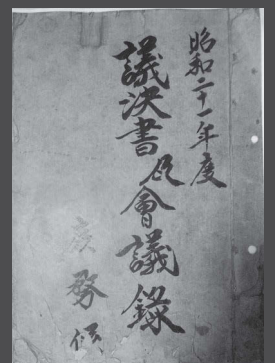 昭和二十一年度
議決書及會議録
庶務係